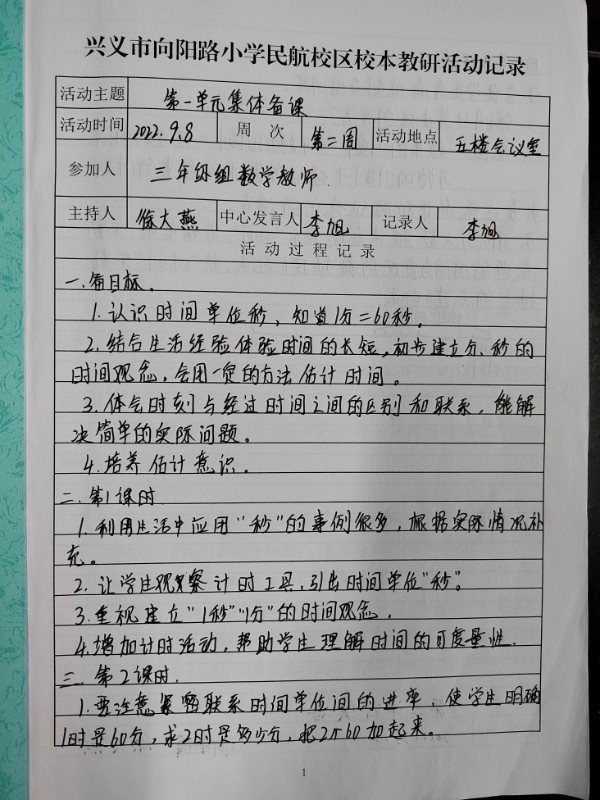 兴义市向阳路小学民航校区校本教研活动记录
活动主题 第一单元集体备课
活动时间 2022.9.8 周次 第二周 活动地点 五楼会议室
参加人 三年级组数学教师.
主持人 徐大燕 中心发言人 李旭 记录人 李旭
活动过程记录
一.看目标.
1.认识时间单位秒，知道1分=60秒。
2.结合生活经验体验时间的长短，初步建立分、秒的
时间观念，会用一定的方法估计时间。
3.体会时刻与经过时间之间的区别和联系，能解
决简单的实际问题。
4.培养估计意识.
二.第1课时
1.利用生活中应用"秒"的事例很多，根据实际情况补
充。
2.让学生观察计时工具，引出时间单位"秒"。
3.重视建立"1秒""1分"的时间观念.
4.增加计时活动，帮助学生理解时间的可度量性.
三.第2课时.
1.要注意紧密联系时间单位间的进率，使学生明确
1时是60分，求2时是多少分，把2个60加起来。
1